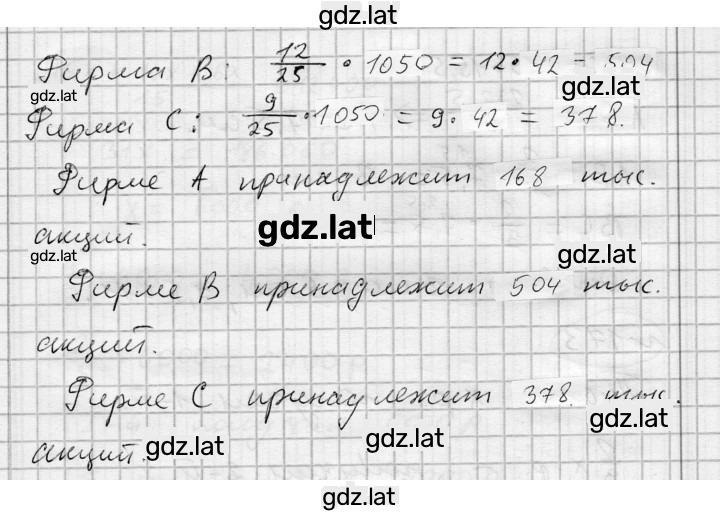 gdz.lat
Фирма В: 12/25 · 1050 = 12 · 42 = 504
gdz.lat
gdz.lat
Фирма С: 9/25 · 1050 = 9 · 42 = 378.
Фирме А принадлежит 168 тыс.
акций.
gdz.lat
gdz.lat
gdz.lat
Фирме В принадлежит 504 тыс.
акций.
Фирме С принадлежит 378. тыс.
gdz.lat
акций.
gdz.lat
gdz.lat
gdz.lat